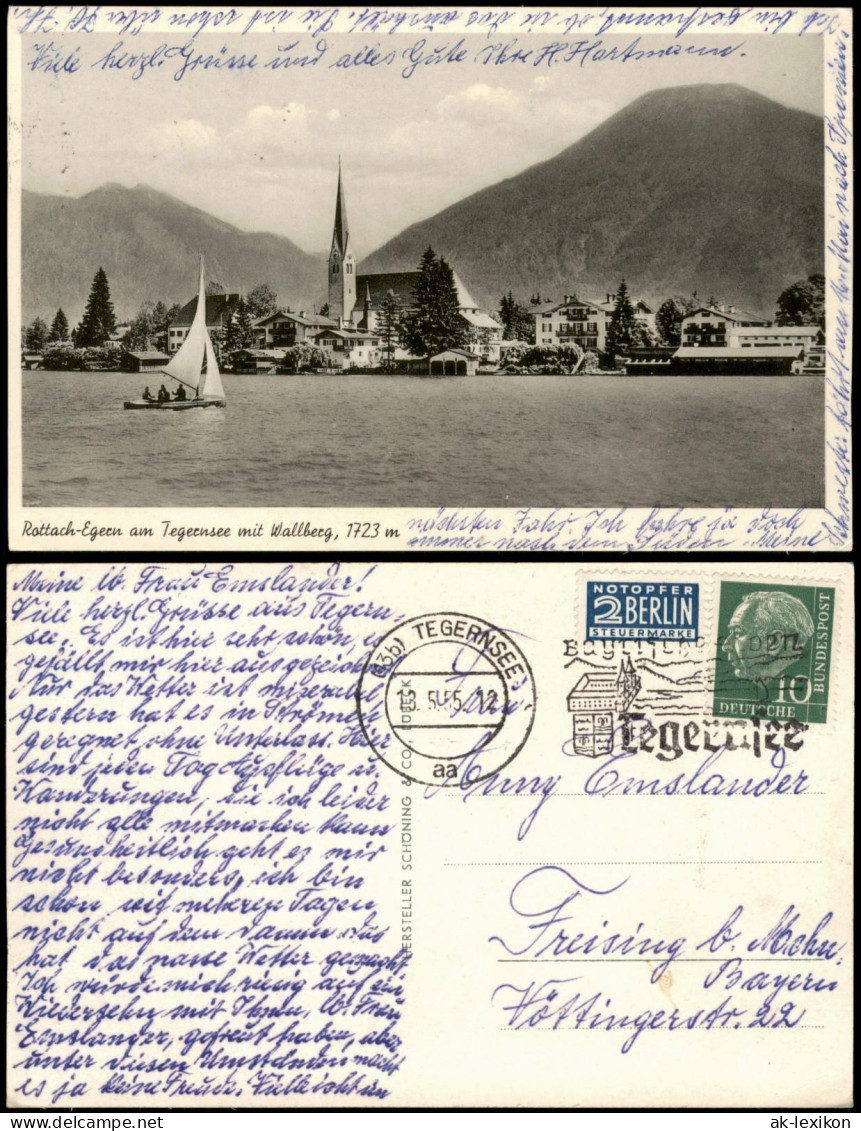 Ich bin gespannt, ob sie das aushält. Sie ist schon über
Viele herzl. Grüsse und alles Gute Ihre H. Hartmann.
Schwester fährt am nach Spanien.
Rottach-Egern am Tegernsee mit Wallberg, 1723 m
nächsten Jahr. Ich fahre ja doch
immer nach dem Süden. Meine
Meine lb. Frau Emslander!
Viele herzl. Grüsse aus Tegern-
see. Es ist hier sehr schön, es
gefällt mir hier ausgezeichn.
Nur das Wetter ist miserabel
gestern hat es in Strömen
geregnet ohne Unterlass. Hier
sind jeden Tag Ausflüge u.
Wanderungen, die ich leider
nicht alle mitmachen kann
Gesundheitlich geht es mir
nicht besonders, ich bin
schon seit mehreren Tagen
nicht auf dem Damm. Das
hat das nasse Wetter gemacht.
Ich würde mich riesig auf ein
Wiedersehn mit Ihnen, lb. Frau
Emslander, gefreut haben, aber
unter diesen Umständen macht
es ja keine Freude. Vielleicht im
(13b) TEGERNSEE
5.55.12
aa
NOTOPFER
2 BERLIN
STEUERMARKE
DEUTSCHE
BUNDESPOST
10
Tegernsee
HERSTELLER SCHÖNING & CO., LÜBECK
Frau
Anny Emslander
Freising b. Mchn.
Bayern
Vöttingerstr. 22
www.ansichtskartenversand.com
ak-lexikon